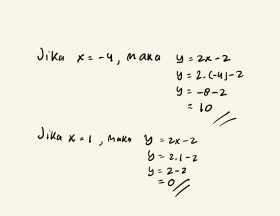 Jika x = -4, maka y = 2x - 2
y = 2.(-4) - 2
y = -8 - 2
= 10
Jika x = 1, maka y = 2x - 2
y = 2.1 - 2
y = 2 - 2
= 0